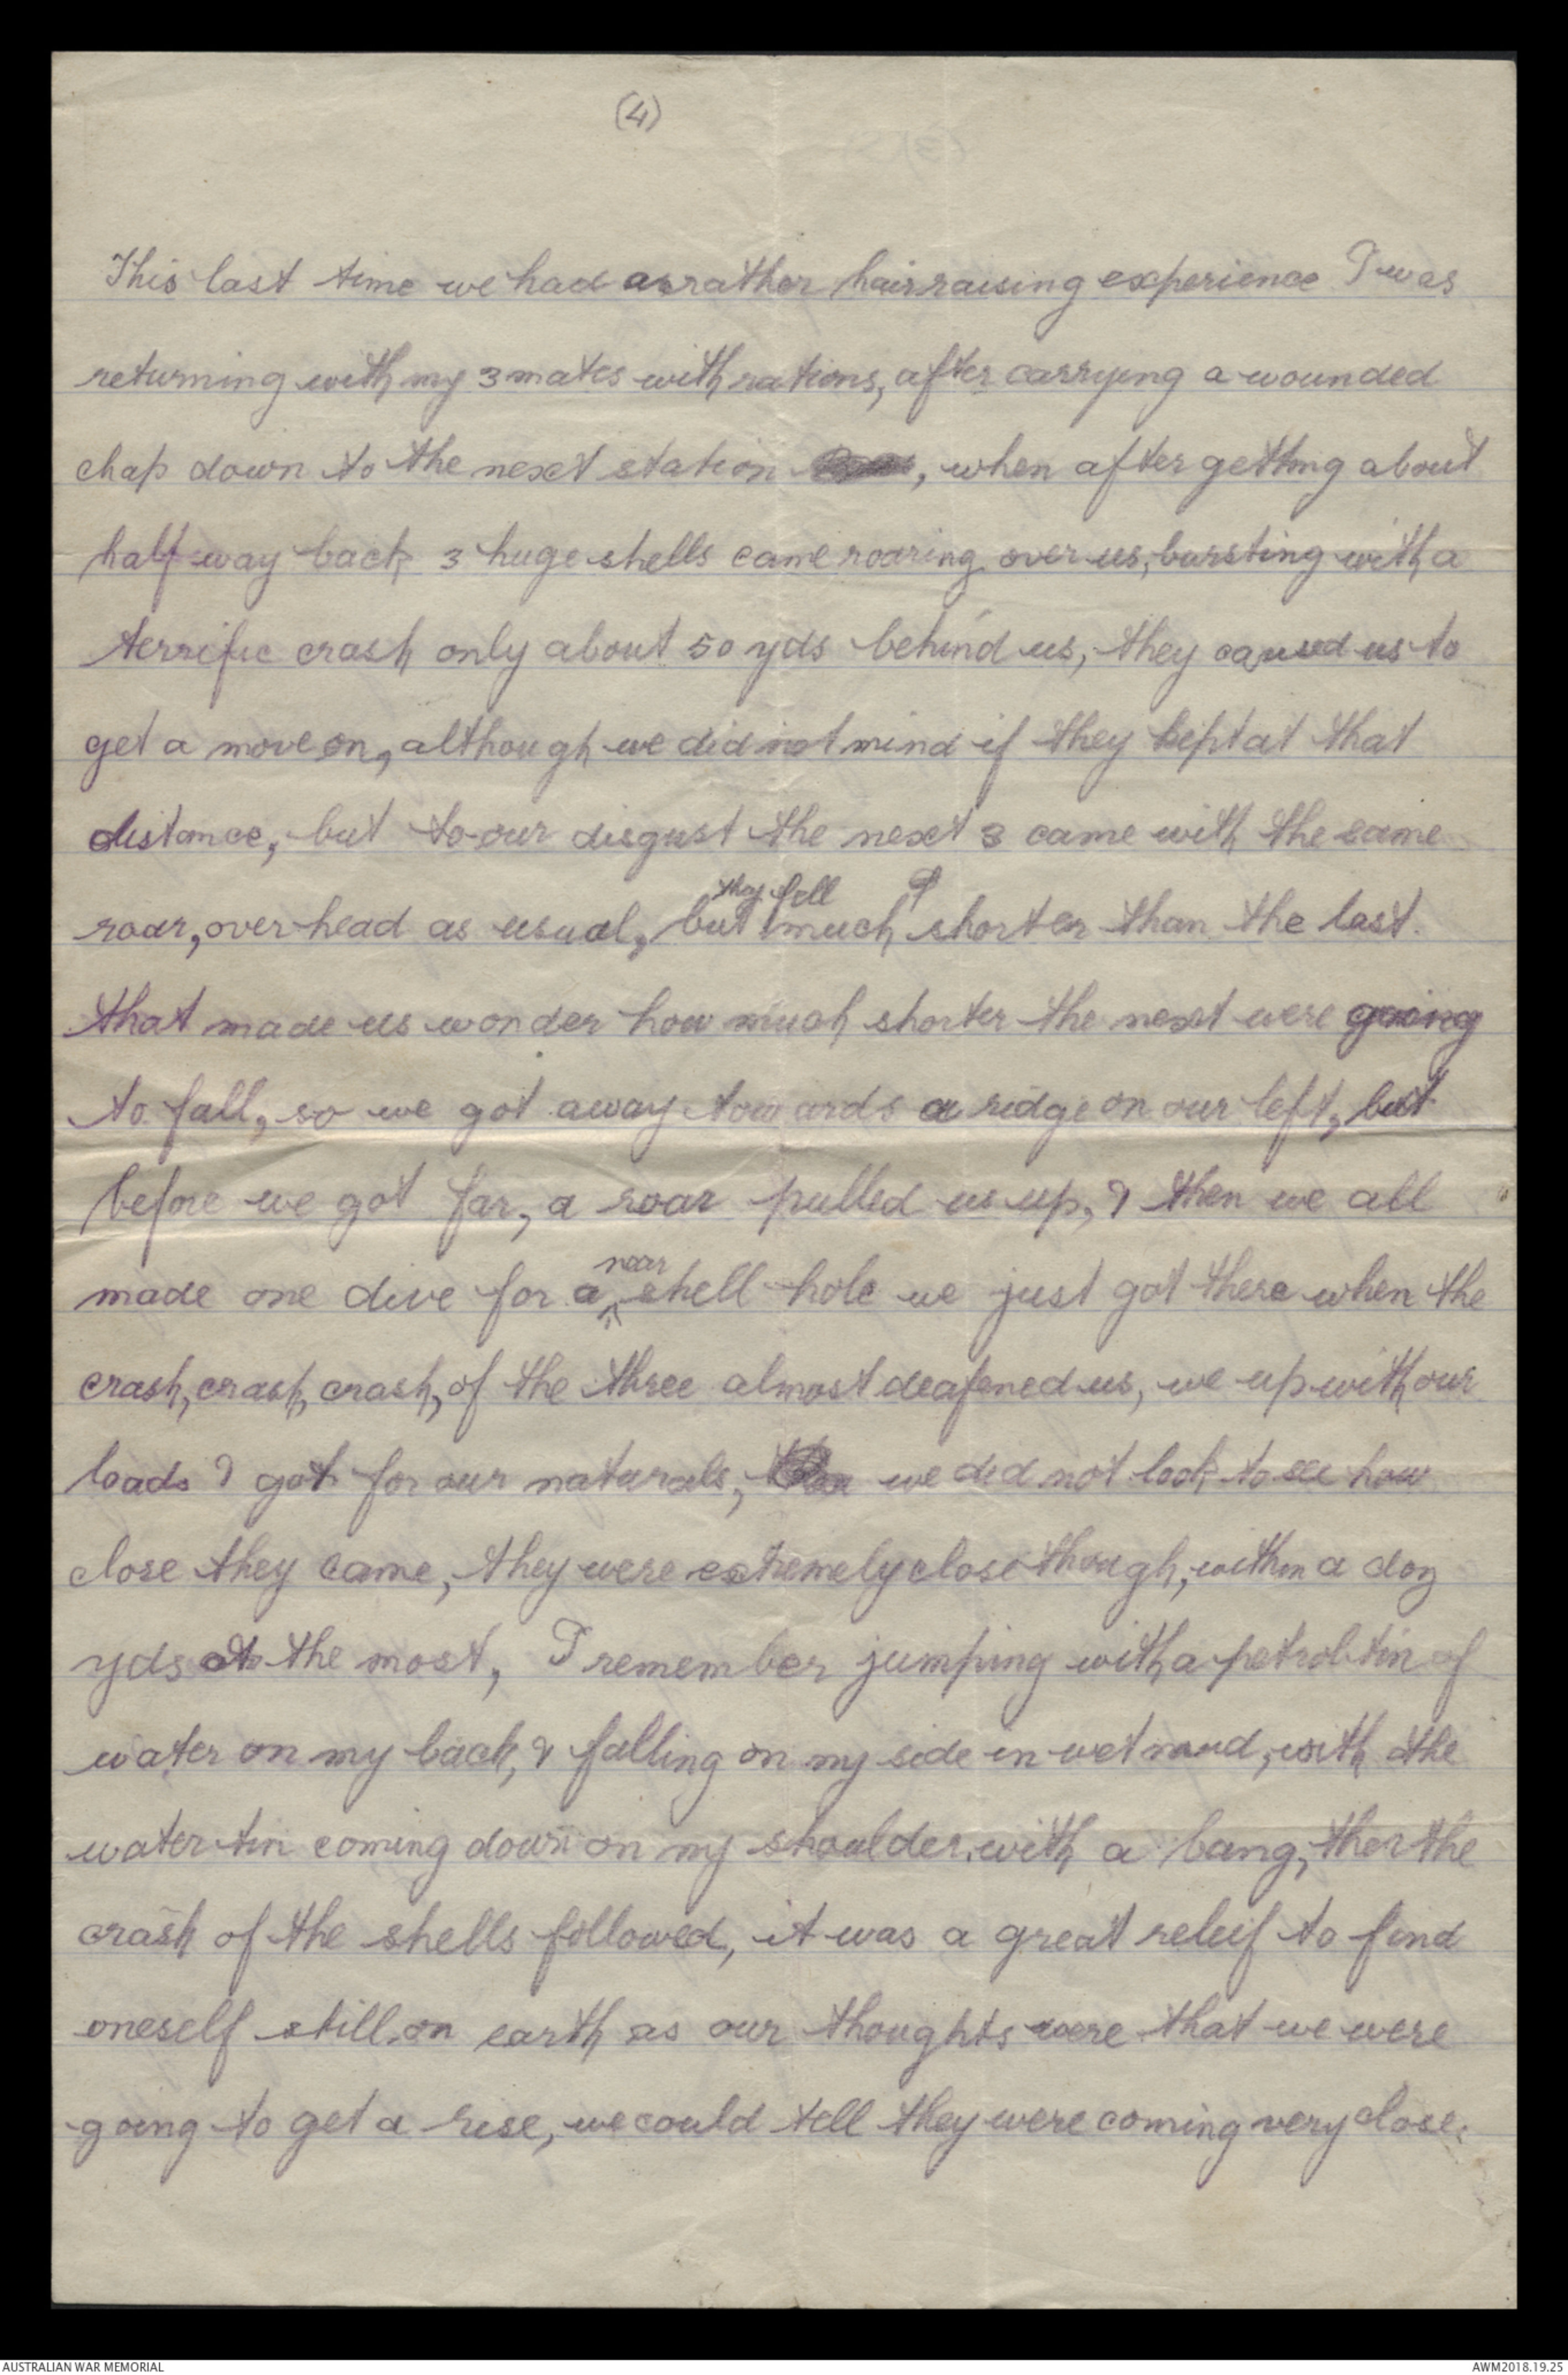 (4)
This last time we had a rather hairraising experience I was
returning with my 3 mates with rations, after carrying a wounded
chap down to the next station, when after getting about
half way back 3 huge shells came roaring over us, bursting with a
terrific crash only about 50 yds behind us, they caused us to
get a move on, although we did not mind if they kept at that
distance, but to our disgust the next 3 came with the same
they fell
roar, over head as usual, but much shorter than the last.
that made us wonder how much shorter the next were going
to fall, so we got away towards a ridge on our left, but
before we got far, a roar pulled us up, & then we all
near
made one dive for a shell hole we just got there when the
crash, crash, crash, of the three almost deafened us, we up with our
loads & got for our naturals, we did not look to see how
close they came, they were extremely close though, within a doz
yds at the most, I remember jumping with a petrol tin of
water on my back, & falling on my side in wet mud, with the
water tin coming down on my shoulder with a bang, then the
crash of the shells followed, it was a great releif to find
oneself still on earth as our thoughts were that we were
going to get a rise, we could tell they were coming very close.
AUSTRALIAN WAR MEMORIAL
AWM2018.19.25